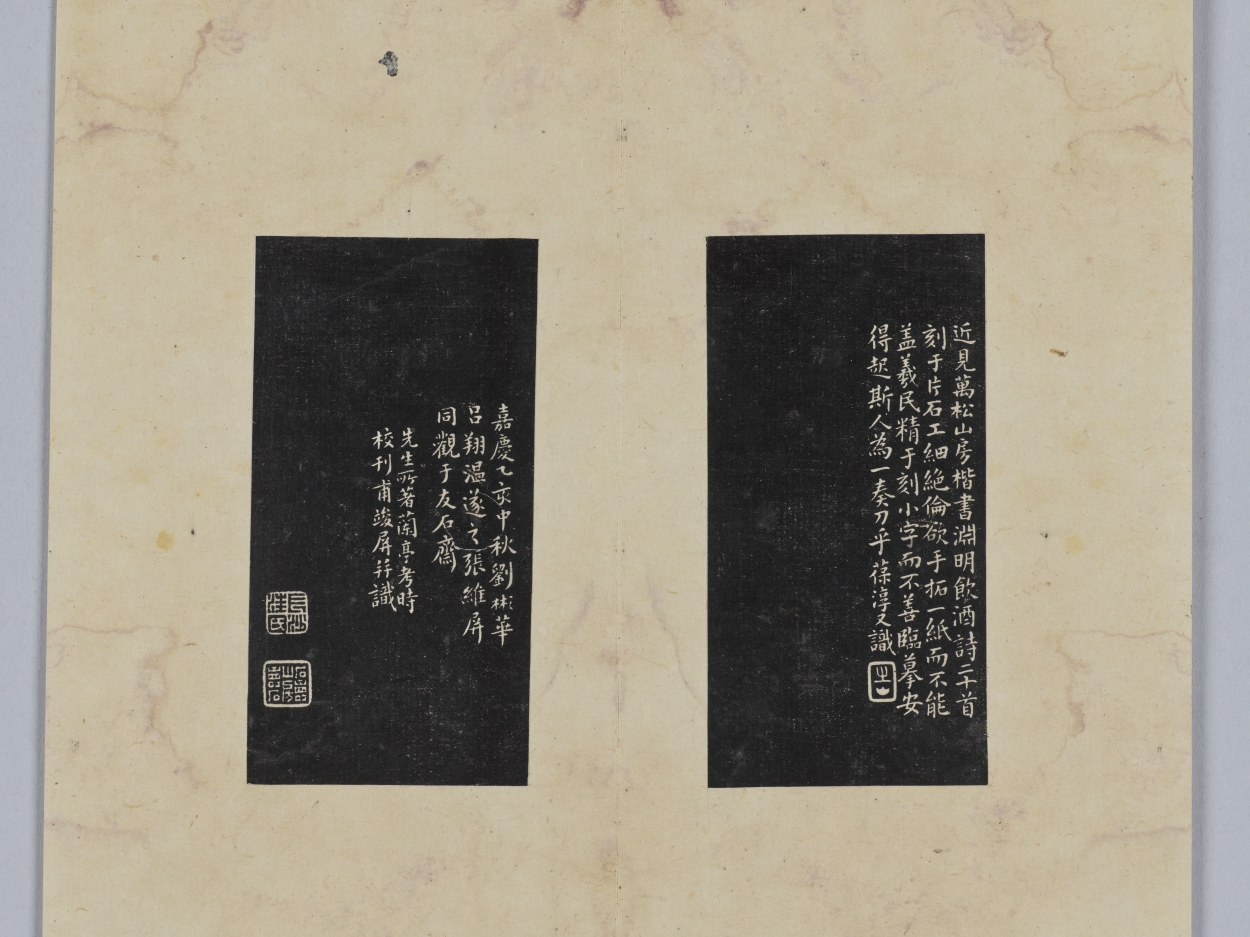 近見萬松山房楷書淵明飲酒詩二十首
刻于片石工細絕倫欲手拓一紙而不能
盖羲民精于刻小字而不善臨摹安
得起斯人為一奏刀乎葆淳又識
嘉慶乙亥中秋劉彬華
呂翔溫遂之張維屏
同觀于友石齋
先生所著蘭亭考時
校刊甫竣屏并識